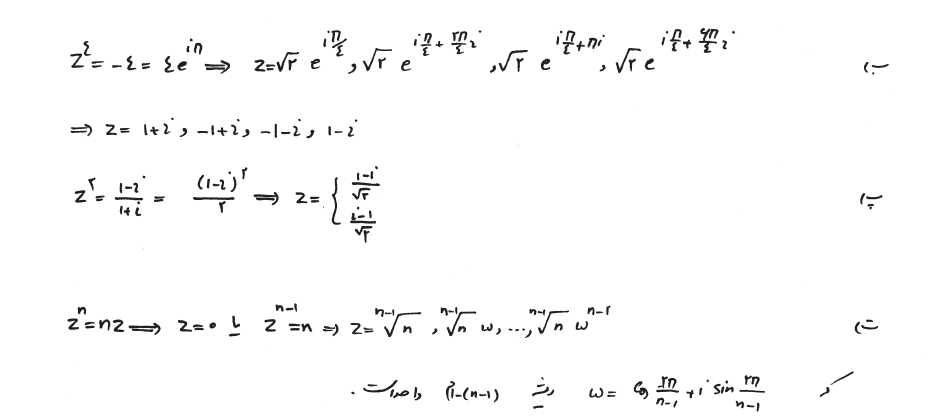 ب) z^۴ = -۴ = ۴e^{iπ} ⟹ z = √۲ e^{iπ/۴} , √۲ e^{iπ/۴ + ۲π/۴ i} , √۲ e^{iπ/۴ + πi} , √۲ e^{iπ/۴ + ۶π/۴ i}
⟹ z = 1+i , -1+i , -1-i , 1-i
پ) z^۲ = (1-i)/(1+i) = (1-i)^۲/۲ ⟹ z = { (1-i)/√۲ , (i-1)/√۲
ت) z^n = nz ⟹ z = ۰ یا z^{n-1} = n ⟹ z = ^{n-1}√n , ^{n-1}√n ω, ..., ^{n-1}√n ω^{n-۲}
که ω = cos ۲π/(n-1) + i sin ۲π/(n-1) ریشه (n-1)-ام واحد است.